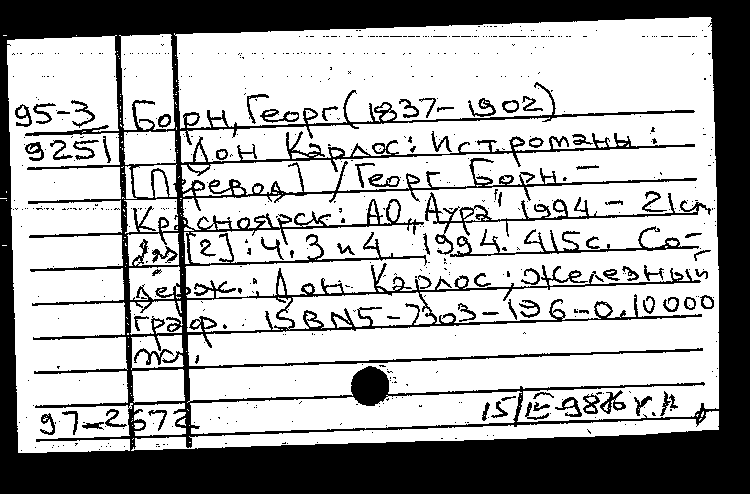 95-3 Борн, Георг (1837-1902)
9251 Дон Карлос: Ист. романы:
[Перевод] / Георг Борн. -
Красноярск: АО "Аура" 1994. - 21 см.
[2]: Ч. 3 и 4. 1994. 415 с. Со-
держ.: Дон Карлос; Железный
граф. ISBN 5-7303-196-0. 10000
97-2672 15/IV-98